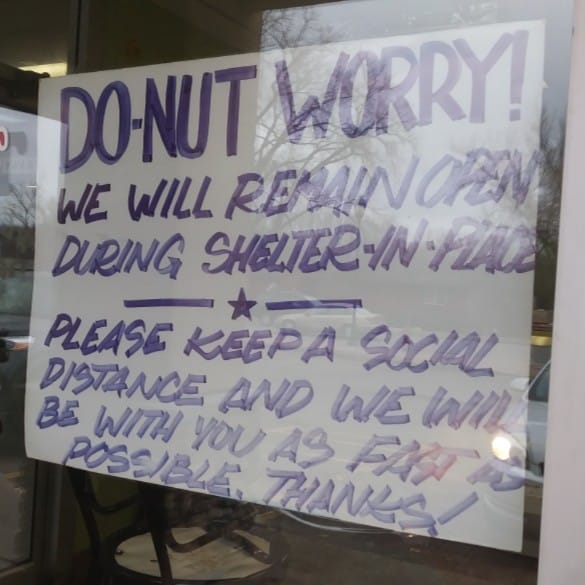 DO-NUT WORRY!
WE WILL REMAIN OPEN
DURING SHELTER-IN-PLACE
PLEASE KEEP A SOCIAL
DISTANCE AND WE WILL
BE WITH YOU AS FAST AS
POSSIBLE. THANKS!